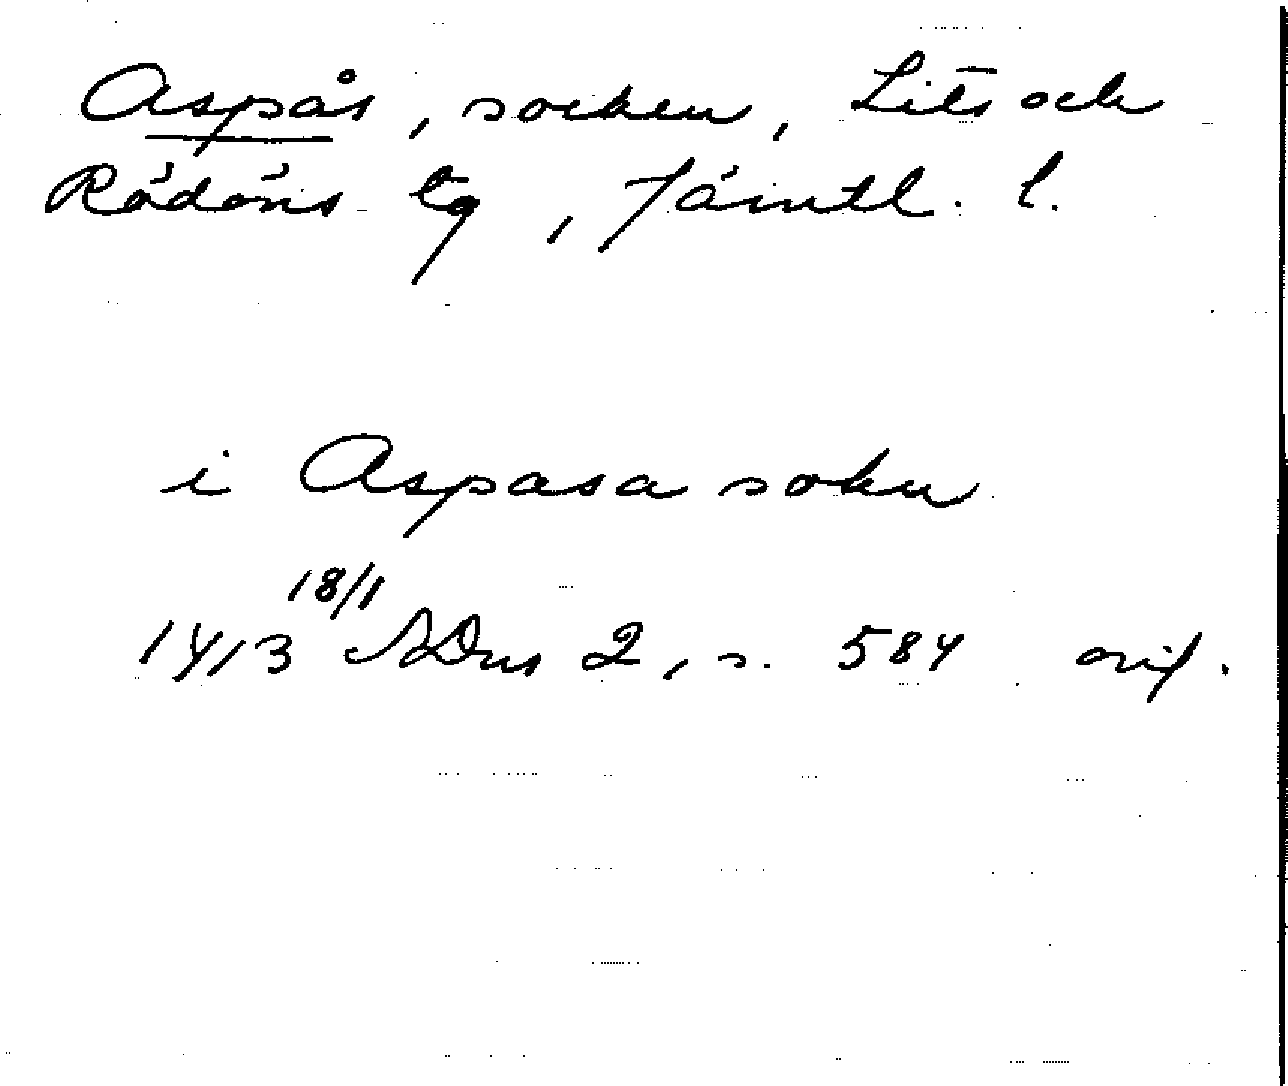 Aspås, socken, Lits och
Rödöns tg, Jämtl. l.
i Aspasa sokn
18/1
1413 SDns 2, s. 584 orig.